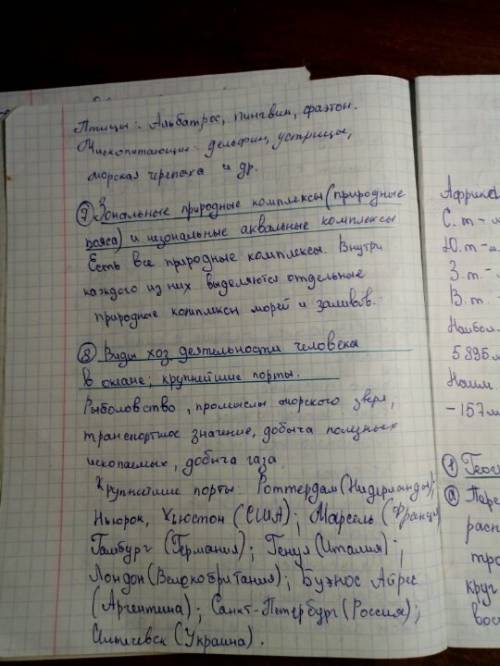 Птицы: Альбатрос, пингвин, фаэтон.
Млекопитающие: дельфин, устрицы,
морская черепаха и др.
7 Зональные природные комплексы (природные
пояса) и незональные аквальные комплексы
Есть все природные комплексы. Внутри
каждого из них выделяются отдельные
природные комплексы морей и заливов.
8 Виды хоз деятельности человека
в океане; крупнейшие порты.
Рыболовство, промыслы морского зверя,
транспортное значение, добыча полезных
ископаемых, добыча газа
Крупнейшие порты: Роттердам (Нидерланды);
Ньюрок, Хьюстон (США); Марсель (Франция)
Гамбург (Германия); Генуя (Италия);
Лондон (Велокобритания); Буэнос Айрес
(Аргентина); Санкт-Петербург (Россия);
(Украина).
Африка
С. т -
Ю. т -
З. т -
В. т.
Наибол.
5895 м
Наим
-157 м
1 Геог
а Пере
расп
тро
круг
вос